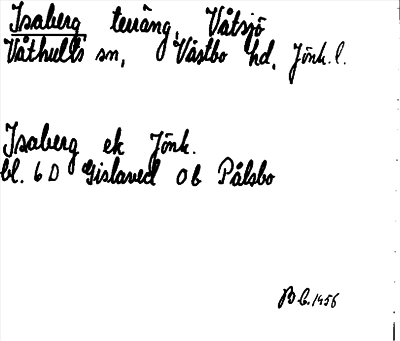 Isaberg teräng, Våtsjö
Våthults sn, Västbo hd, Jönk. l.
Isaberg ek Jönk.
bl. 6 D Gislaved Ob Pålsbo
B G. 1956